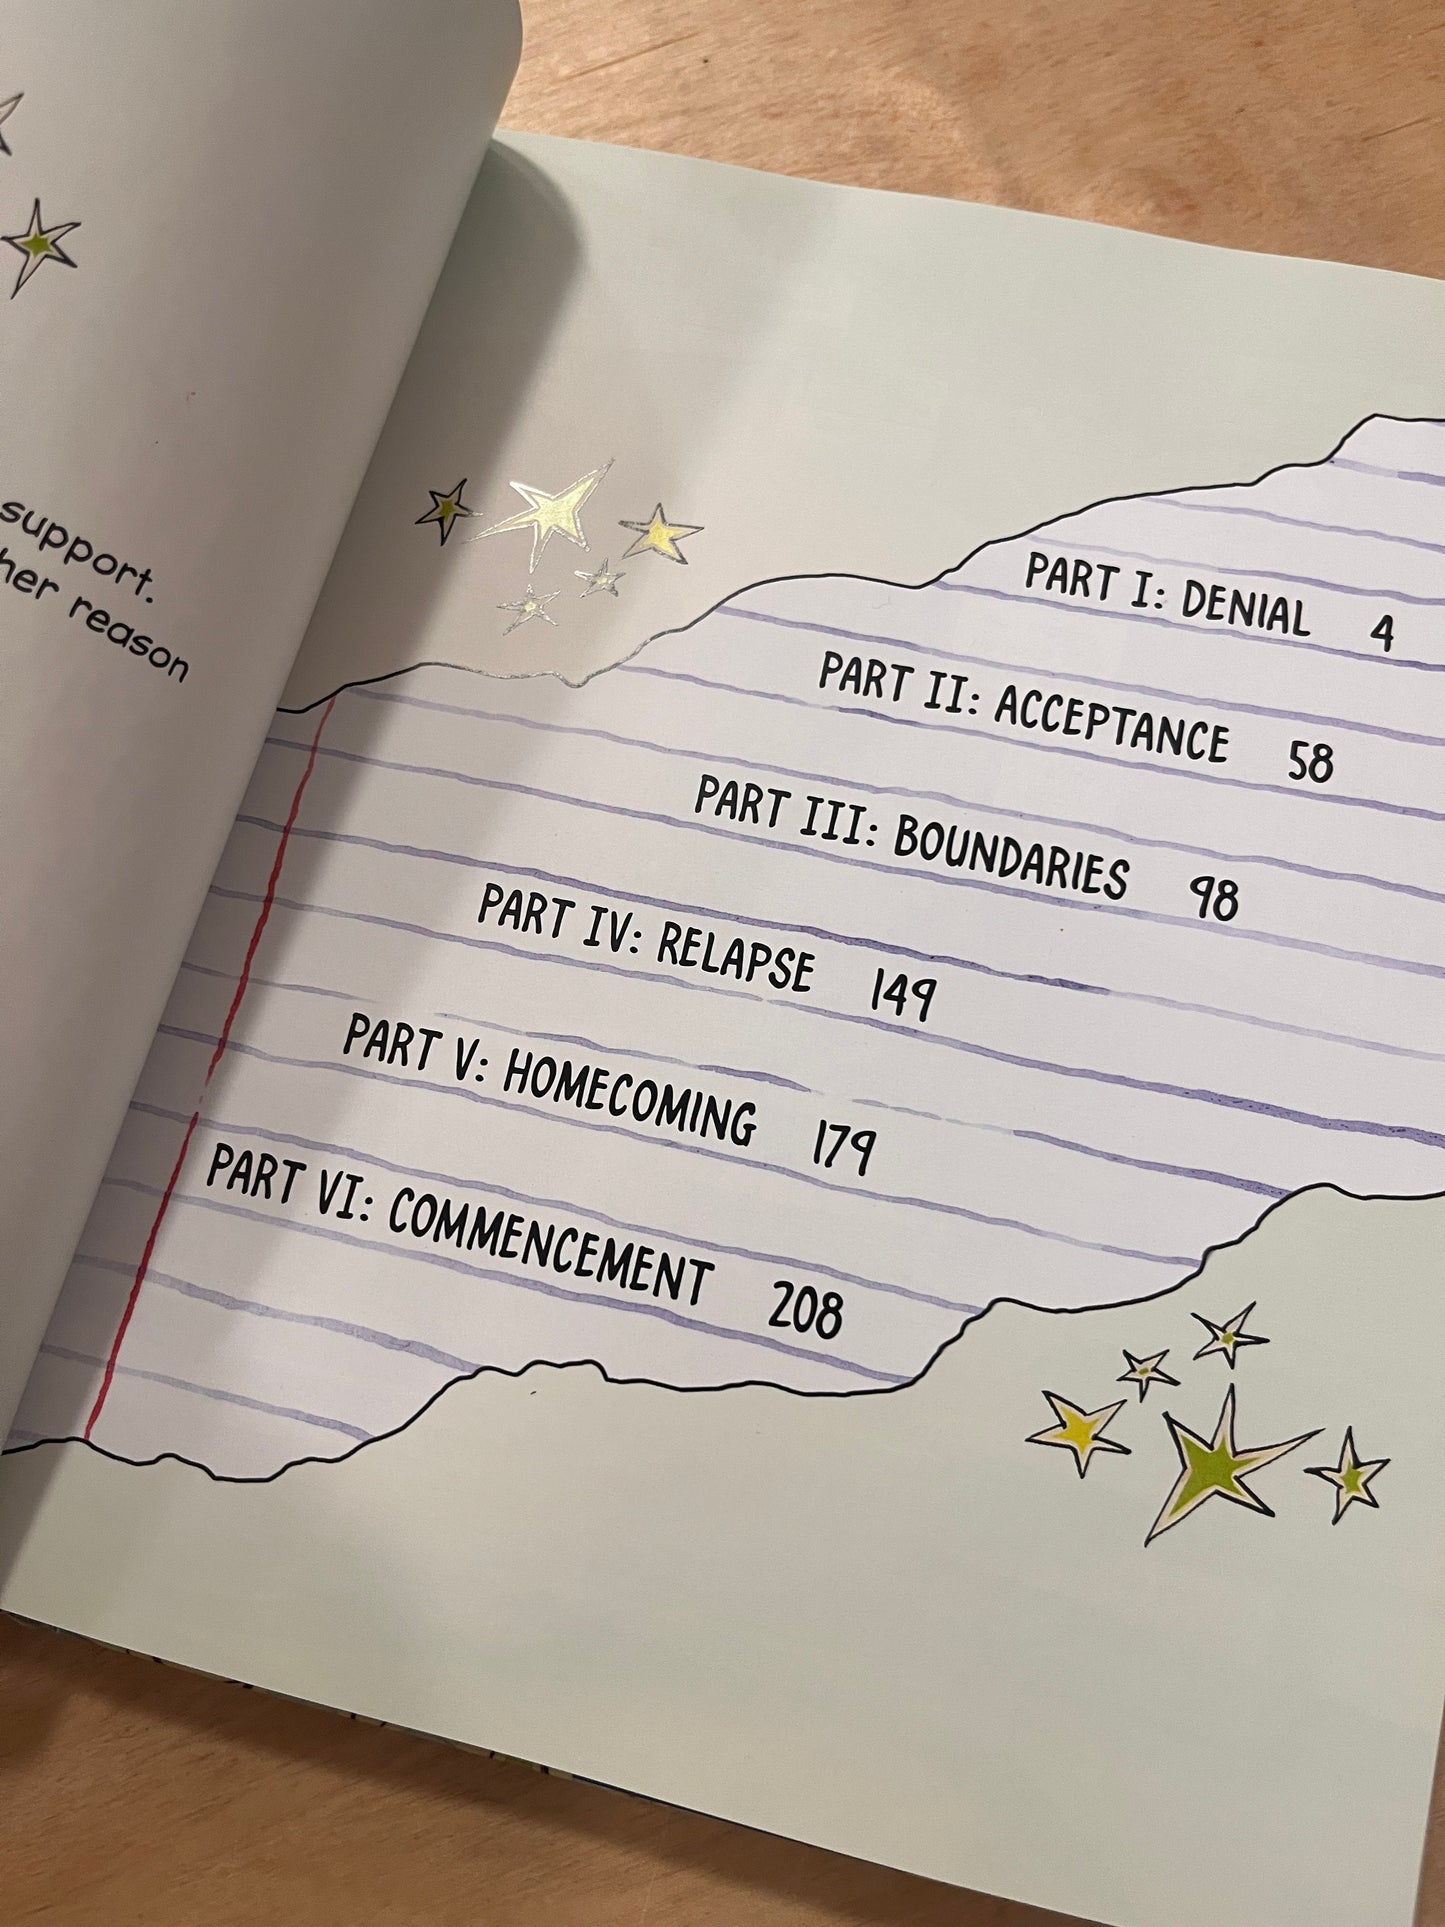 support.
her reason
PART I: DENIAL 4
PART II: ACCEPTANCE 58
PART III: BOUNDARIES 98
PART IV: RELAPSE 149
PART V: HOMECOMING 179
PART VI: COMMENCEMENT 208